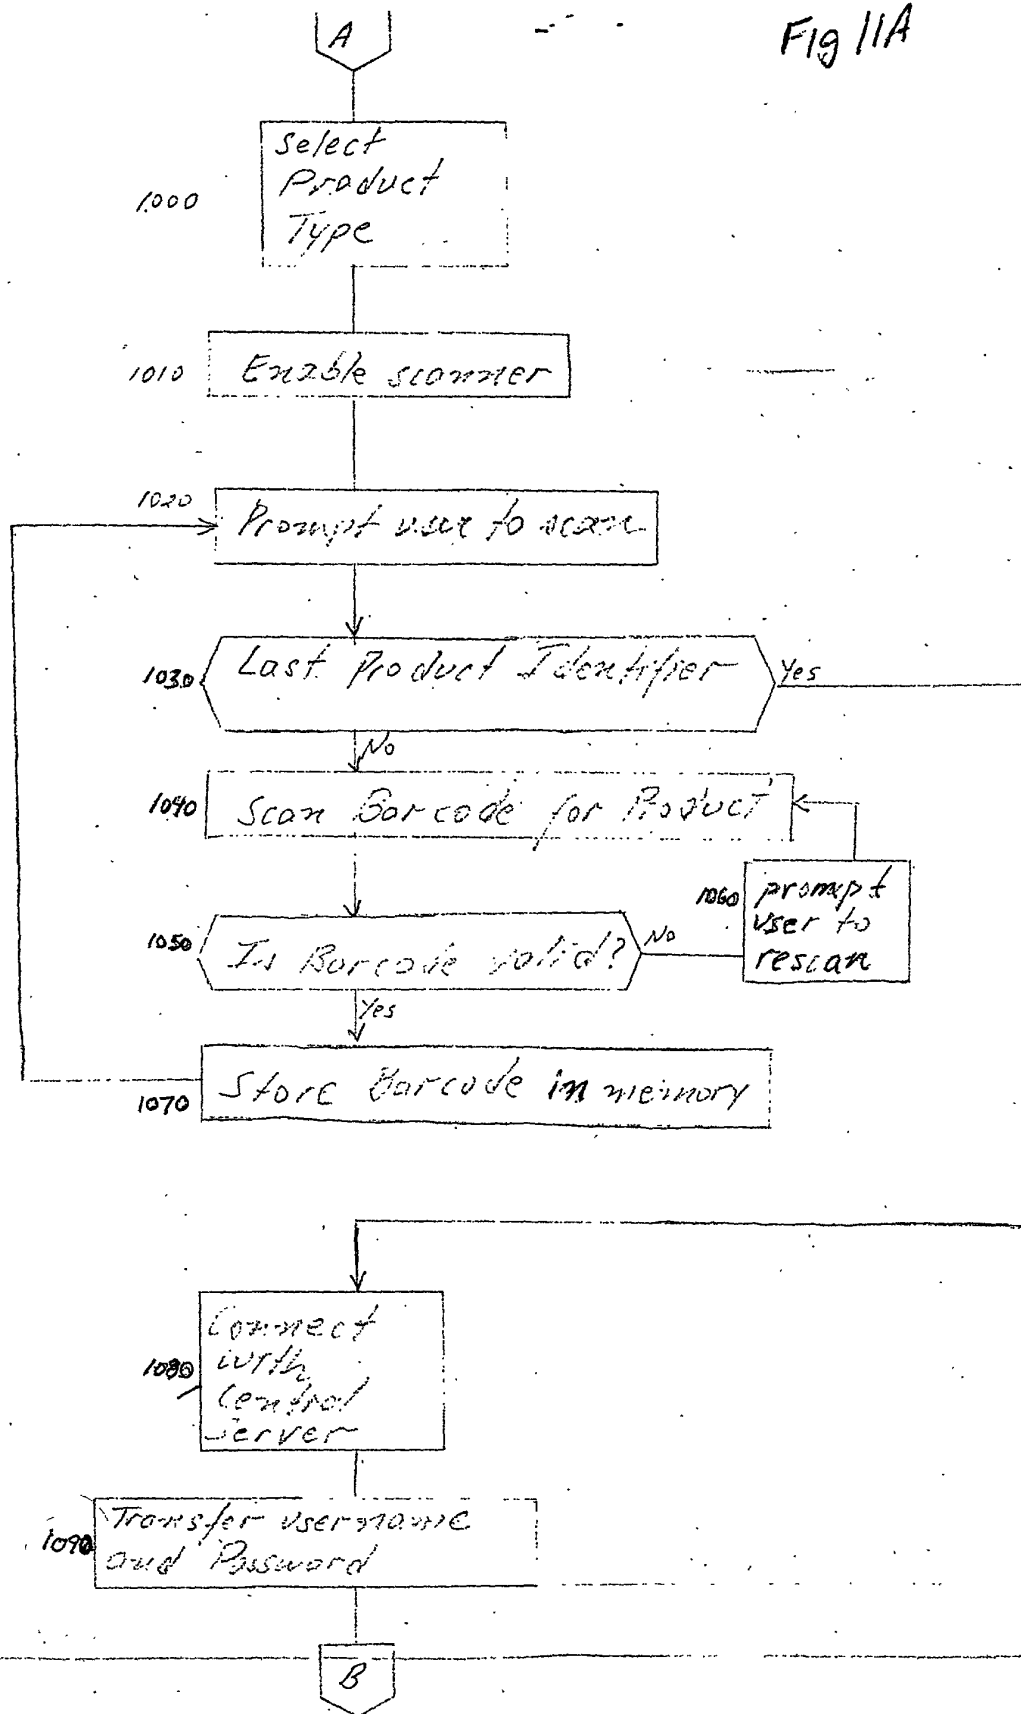 A
Fig 11A
Select
Product
Type
1000
1010
Enable scanner
1020
Prompt user to scan
1030
Last Product Identifier
Yes
No
1040
Scan Barcode for Product
1060
prompt
user to
rescan
1050
Is Barcode valid?
No
Yes
1070
Store Barcode in memory
Connect
with
Central
Server
1080
Transfer username
and Password
1090
B